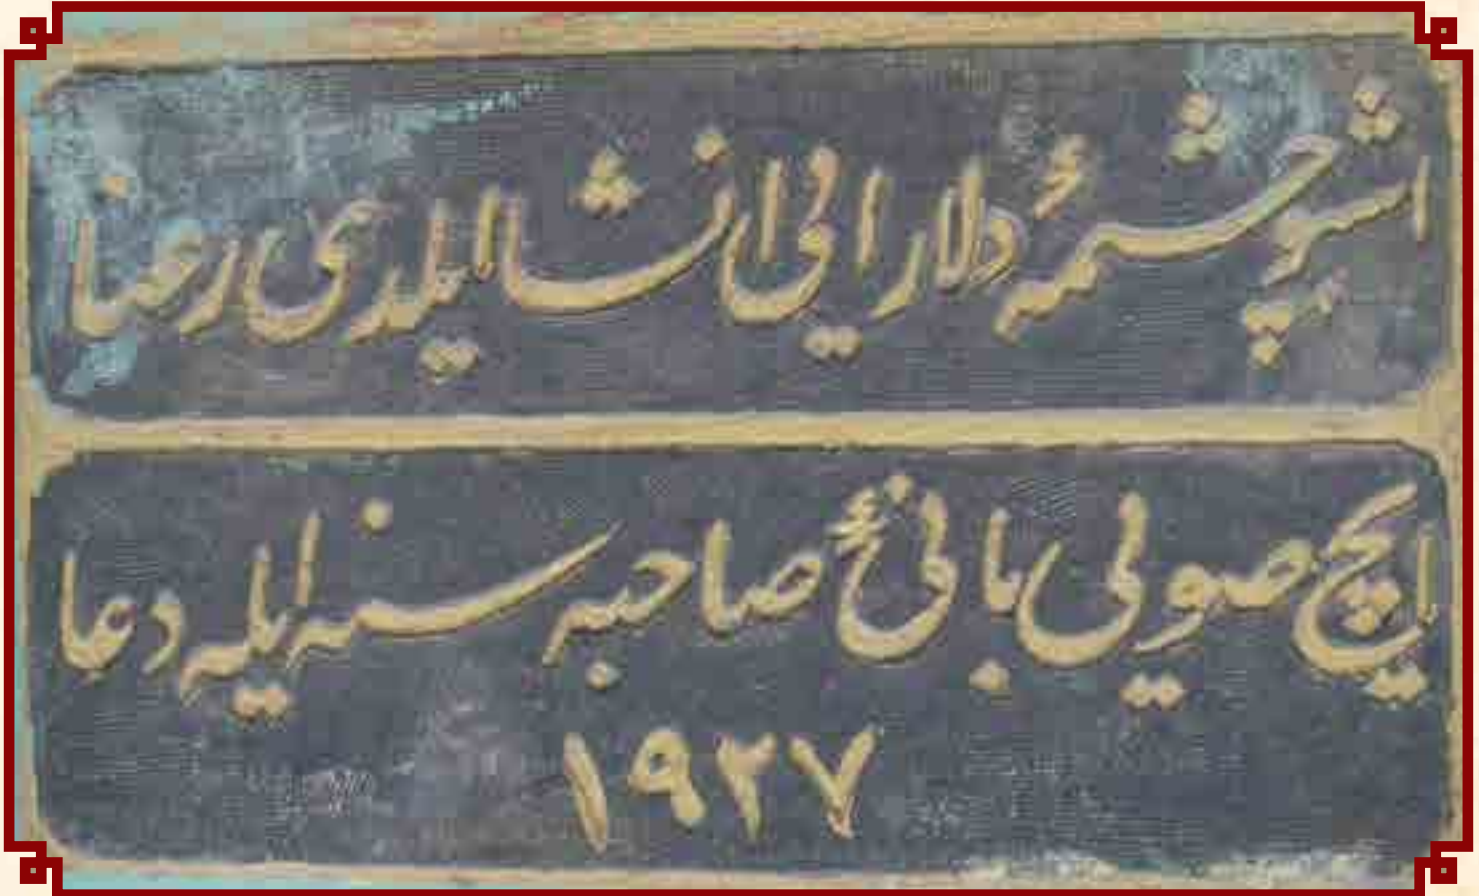 اشبو چشمهٔ دلارایی انشا ایلدی رعنا
ایچ صویی بانیٔ صاحبه سنه ایله دعا
١٩٢٧